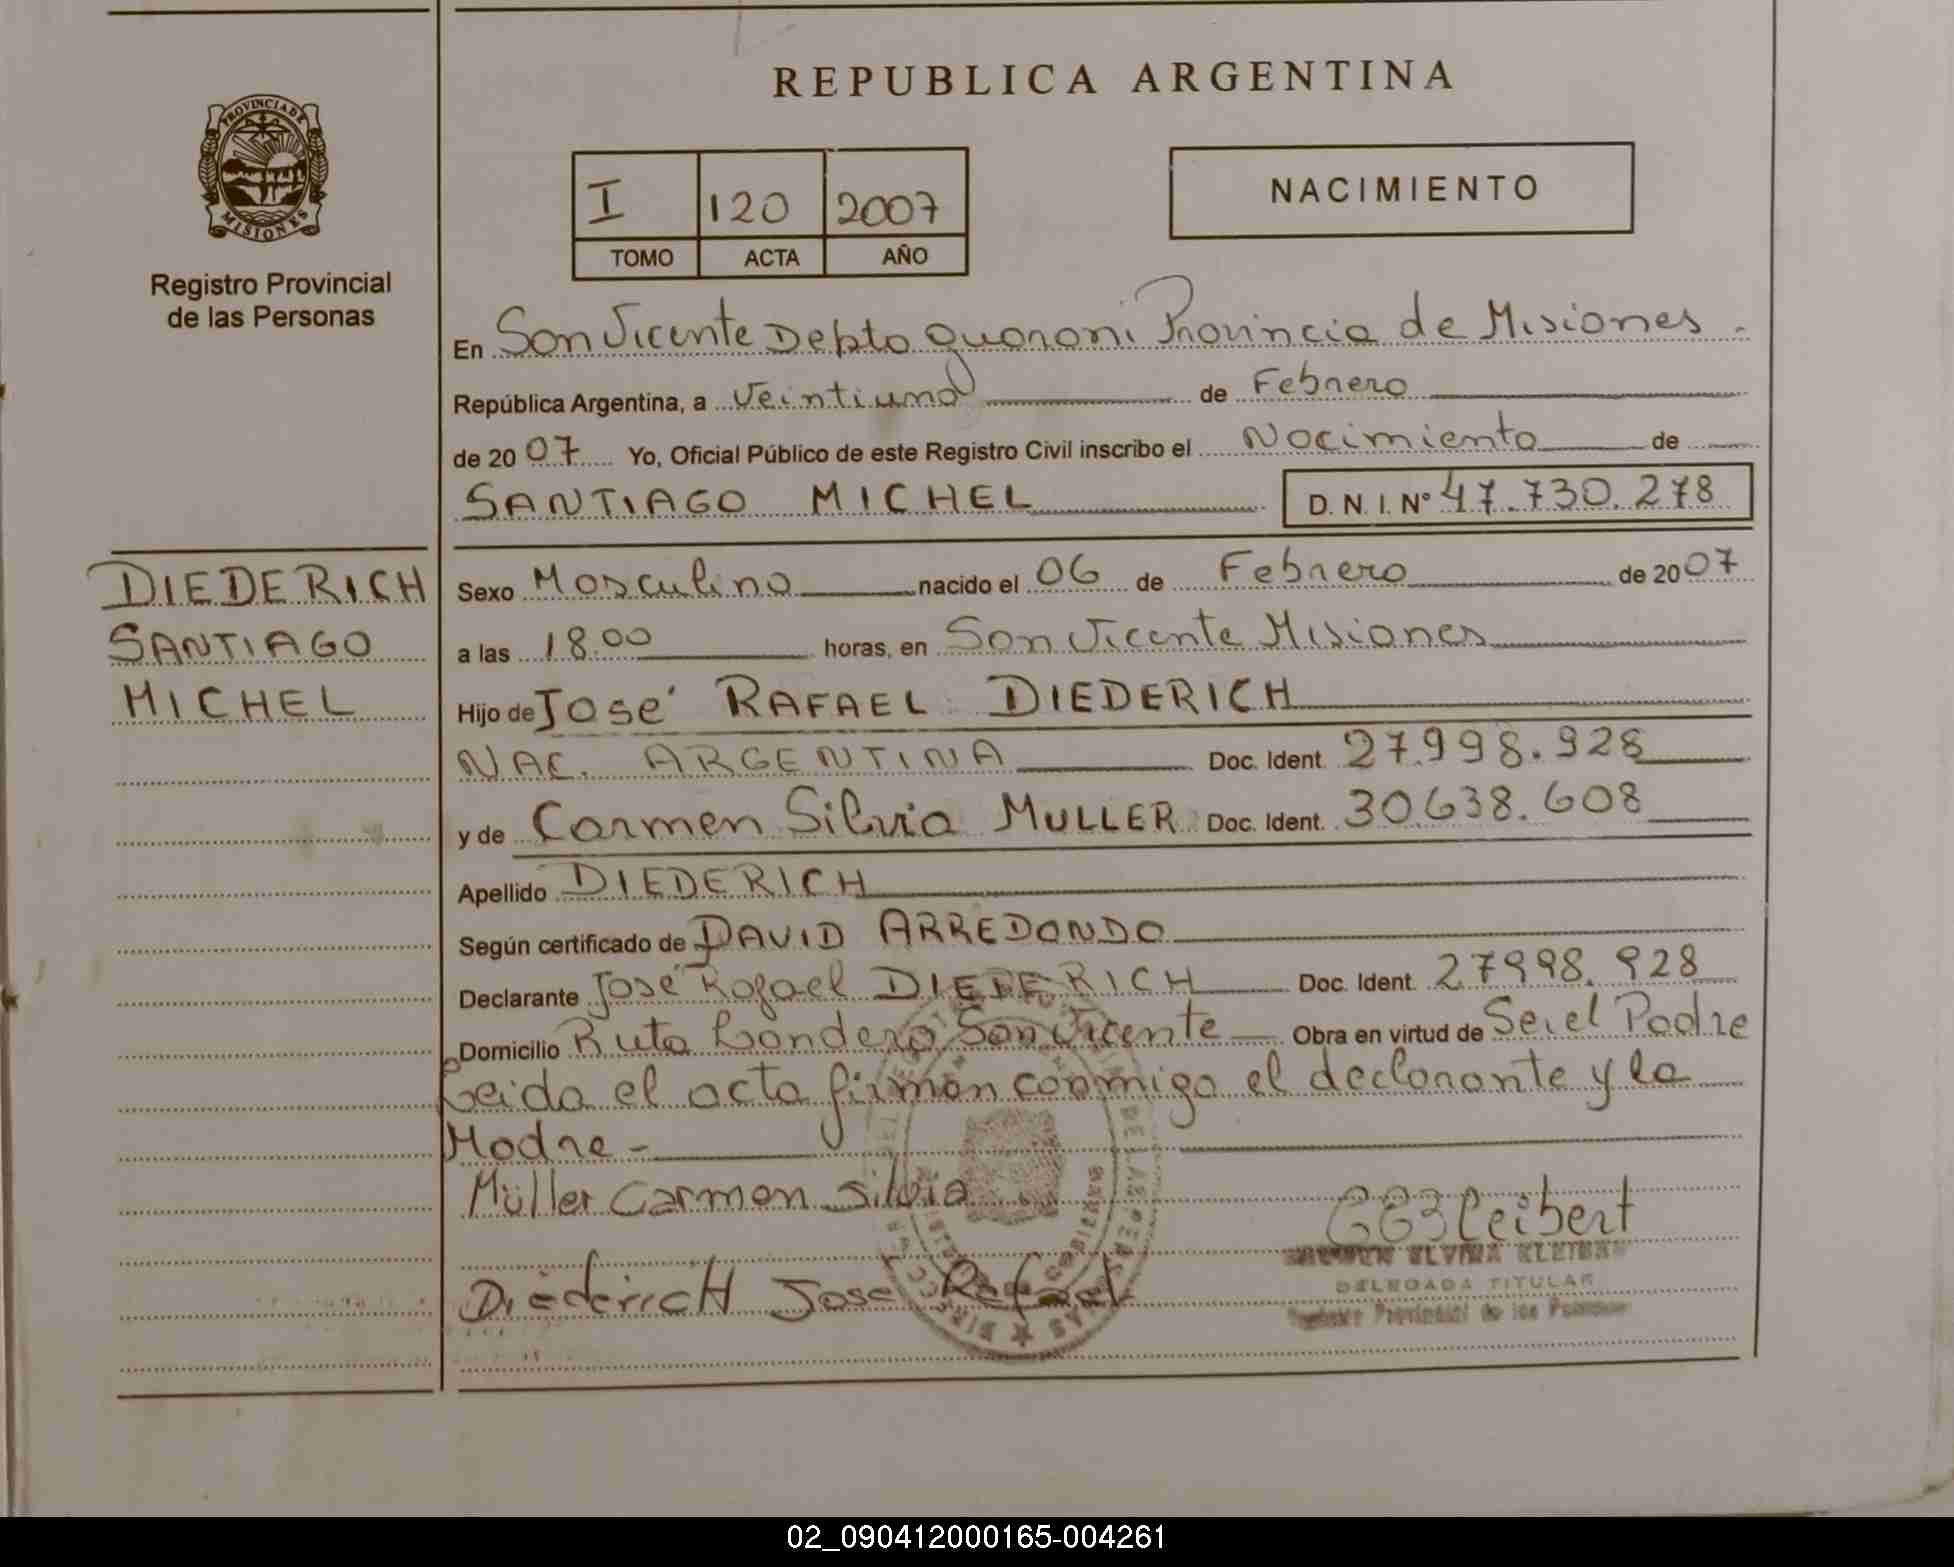 REPUBLICA ARGENTINA
PROVINCIA DE
MISIONES
Registro Provincial
de las Personas
I 120 2007
TOMO ACTA AÑO
NACIMIENTO
En San Vicente Depto Guarani Provincia de Misiones -
República Argentina, a Veintiuno de Febrero
de 2007 Yo, Oficial Público de este Registro Civil inscribo el Nacimiento de
SANTIAGO MICHEL D. N. I. Nº 47.730.278
DIEDERICH
SANTIAGO
MICHEL
Sexo Masculino nacido el 06 de Febrero de 2007
a las 18.00 horas, en San Vicente Misiones
Hijo de José RAFAEL DIEDERICH
NAC. ARGENTINA Doc. Ident. 27.998.928
y de Carmen Silvia MULLER Doc. Ident. 30.638.608
Apellido DIEDERICH
Según certificado de DAVID ARREDONDO
Declarante José Rafael DIEDERICH Doc. Ident. 27998.928
Domicilio Ruta Londero San Vicente Obra en virtud de Ser el Padre
Leida el acta firman conmigo el declarante y la
Madre -
Müller Carmen Silvia
DiederichH Jose Rafael
DELEGADA TITULAR
Provincial de las Personas
02_090412000165-004261